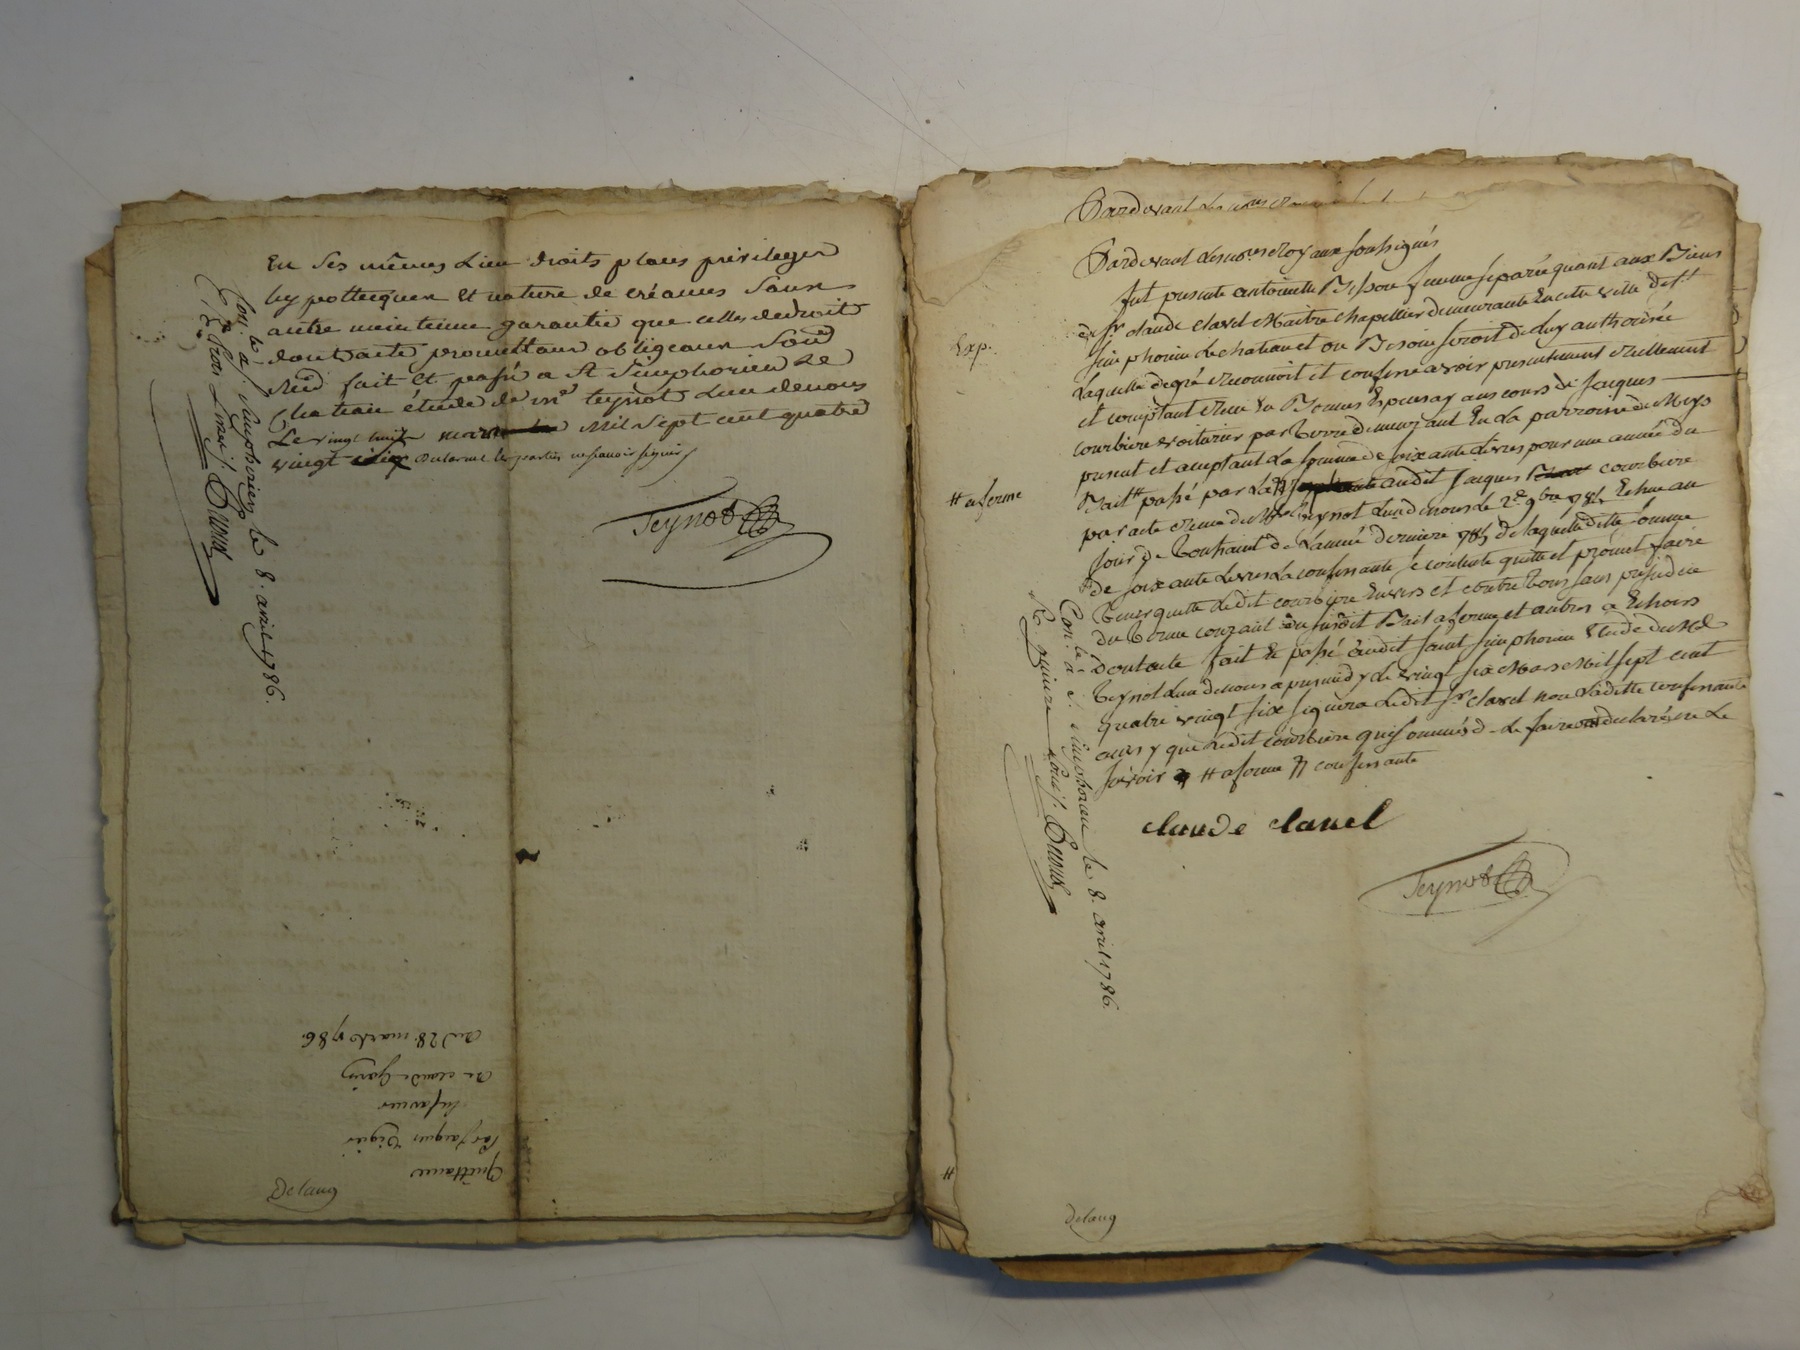 En ses mêmes lieu droits places privileges
hypotteques et nature de créances sans
autre maintenue garantie que celles dedroit
dont acte promettans obligeans soum
fait et passé a St Simphorien le
chateau étude de me teynot l'un denous
Le vingt huit mars mil sept cent quatre
vingt six declarent les parties ne savoir signer
Teynot
Con. le a S. Simphorien le 8. avril 1786.
Quittance
Par Jacques
a claude
du 28. mars 1786.
Delang
Pardevant les
Pardevant les nores royaux soussignés
fut presente antoinette femme separée quant aux Biens
de sr claude clavel Maitre chapellier demeurante en cette ville de st
simphorien le chateau et ou Besoin seroit de luy authorisée
Laquelle de gré reconnoit et confesse avoir presentement réellement
et comptant recu en Bonnes Especes ayans cours de Jacques
courbiere voiturier par terre demeurant En la parroisse de Meys
present et acceptant La somme de soixante Livres pour une année du
Bail # passé par La audit Jacques courbiere
par acte recu du Me teynot L'un de nous le 2e 9bre 1784 Echue au
jour de toussaint de L'année derniere 1785 de laquelle ditte somme
de soixante Livres La confessante se contente quitte et promet faire
tenir quitte Ledit courbiere Envers et contre tous sans prejudice
du terme courant du susdit Bail a ferme et autres a Echoirs
dont acte fait Et passé audit saint simphorien Etude du Me
teynot L'un de nous apresmidy le vingt six Mars Mil sept cent
quatre vingt six signera Ledit sr clavel non La ditte confessante
avec y que Ledit courbiere qui sommés de le faire ont declaré ne le
sçavoir # a ferme confessante
claude clavel
Teynot
Exp.
# a ferme
Con. le a S. Simphorien le 8. avril 1786.
#
Delang